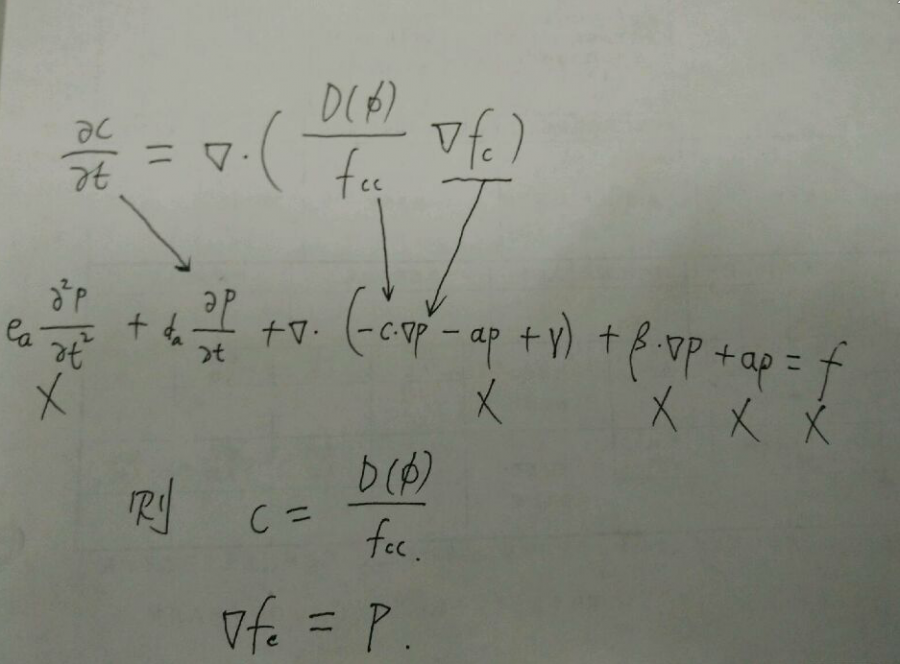 ∂c/∂t = ∇·( D(ϕ)/f_cc ∇f_c )
e_a ∂²p/∂t² + d_a ∂p/∂t + ∇· (-c·∇p - ap + γ) + β·∇p + ap = f
X X X X X
则 c = D(ϕ)/f_cc.
∇f_c = p.